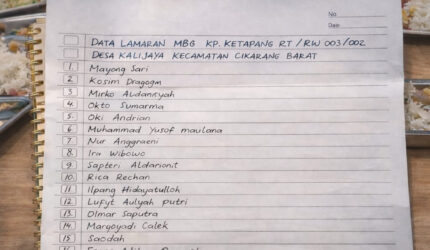 No.
Date
DATA LAMARAN MBG KP. KETAPANG RT/RW 003/002
DESA KALIJAYA KECAMATAN CIKARANG BARAT
1. Mayong Sari
2. Kosim Dragogin
3. Mirko Audansyah
4. Okto Sumarma
5. Oki Andrian
6. Muhammad Yusof maulana
7. Nur Anggraeni
8. Ira Wibowo
9. Sapteri Aldarionit
10. Rica Rechan
11. Ilpang Hidayatulloh
12. Lufyt Aulyah putri
13. Olmar Saputra
14. Maryoyadi Calek
15. Saodah